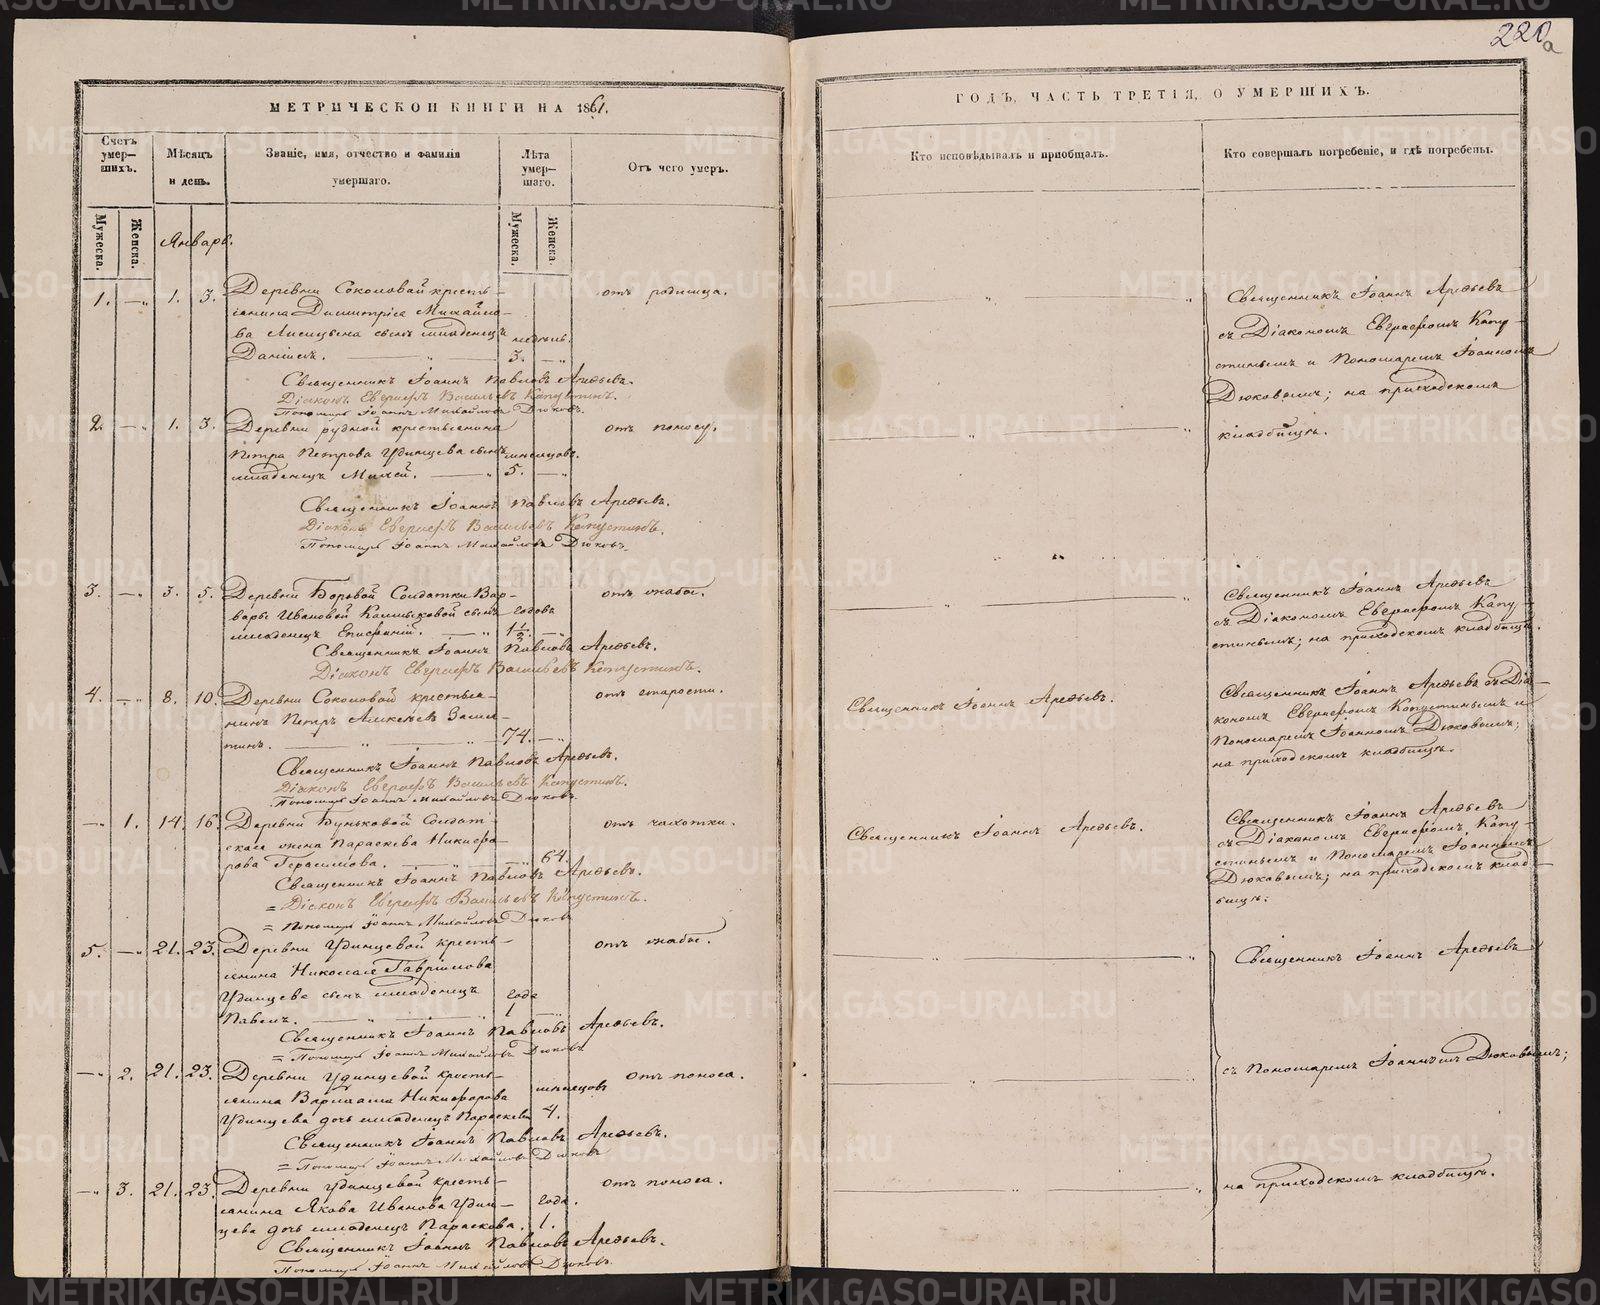 220а
МЕТРИЧЕСКОЙ КНИГИ НА 1861.
ГОДЪ, ЧАСТЬ ТРЕТІЯ, О УМЕРШИХЪ.
Счетъ умер-шихъ.
Мѣсяцъ и день.
Званіе, имя, отчество и фамилія умершаго.
Лѣта умер-шаго.
Отъ чего умеръ.
Кто исповѣдывалъ и пріобщалъ.
Кто совершалъ погребеніе, и гдѣ погребены.
Мужеска.
Женска.
Мужеска.
Женска.
Январь.
1. 1. 3. Деревни Соколовой кресть-
янина Димитрія Михайло-
ва сынъ младенецъ недѣль.
Даніилъ. 3.
отъ родимца.
Священникъ Іоаннъ Павловъ Арефьевъ.
Діаконъ Евграфъ Васильевъ Капустинъ.
Пономарь Іоаннъ Михайловъ Дюковъ.
Священникъ Іоаннъ Арефьевъ
съ Діакономъ Евграфомъ Капу-
стинымъ и Пономаремъ Іоанномъ
Дюковымъ; на приходскомъ
кладбищѣ.
2. 1. 3. Деревни рудной крестьянина
Петра Петрова Удинцева сынъ мѣсяцовъ.
младенецъ 5.
отъ поносу.
Священникъ Іоаннъ Павловъ Арефьевъ.
Діаконъ Евграфъ Васильевъ Капустинъ.
Пономарь Іоаннъ Михайловъ Дюковъ.
3. 3. 5. Деревни Боровой Солдатки Вар-
вары Ивановой сынъ годовъ
младенецъ Епифаній. 1 1/2.
отъ слабос.
Священникъ Іоаннъ Павловъ Арефьевъ.
Діаконъ Евграфъ Васильевъ Капустинъ.
Священникъ Іоаннъ Арефьевъ
съ Діакономъ Евграфомъ Капу-
стинымъ; на приходскомъ кладбищѣ.
4. 8. 10. Деревни Соколовой крестья-
нинъ Петръ Алексѣевъ
74.
отъ старости.
Священникъ Іоаннъ Павловъ Арефьевъ.
Діаконъ Евграфъ Васильевъ Капустинъ.
Пономарь Іоаннъ Михайловъ Дюковъ.
Священникъ Іоаннъ Арефьевъ.
Священникъ Іоаннъ Арефьевъ съ Діа-
кономъ Евграфомъ Капустинымъ и
Пономаремъ Іоанномъ Дюковымъ;
на приходскомъ кладбищѣ.
1. 14. 16. Деревни Буньковой Солдат-
ская жена Параскева Никифо-
рова Герасимова. 64.
отъ чахотки.
Священникъ Іоаннъ Павловъ Арефьевъ.
= Діаконъ Евграфъ Васильевъ Капустинъ.
= Пономарь Іоаннъ Михайловъ Дюковъ
Священникъ Іоаннъ Арефьевъ.
Священникъ Іоаннъ Арефьевъ
съ Діакономъ Евграфомъ Капу-
стинымъ и Пономаремъ Іоанномъ
Дюковымъ; на приходскомъ клад-
бищѣ.
5. 21. 23. Деревни Удинцевой кресть-
янина Николая Гавріилова
Удинцева сынъ младенецъ года
Павелъ. 1
отъ слабос.
Священникъ Іоаннъ Павловъ Арефьевъ.
= Пономарь Іоаннъ Михайловъ Дюковъ
Священникъ Іоаннъ Арефьевъ
2. 21. 23. Деревни Удинцевой кресть-
янина Варлаама Никифорова мѣсяцовъ
Удинцева дочь младенецъ Параскева 4.
отъ поноса.
Священникъ Іоаннъ Павловъ Арефьевъ.
= Пономарь Іоаннъ Михайловъ Дюковъ
съ Пономаремъ Іоанномъ Дюковымъ;
3. 21. 23. Деревни Удинцевой кресть-
янина Якова Иванова Удин- года.
цева дочь младенецъ Параскова. 1.
отъ поноса.
Священникъ Іоаннъ Павловъ Арефьевъ.
Пономарь Іоаннъ Михайловъ Дюковъ.
на приходскомъ кладбищѣ.
METRIKI.GASO-URAL.RU